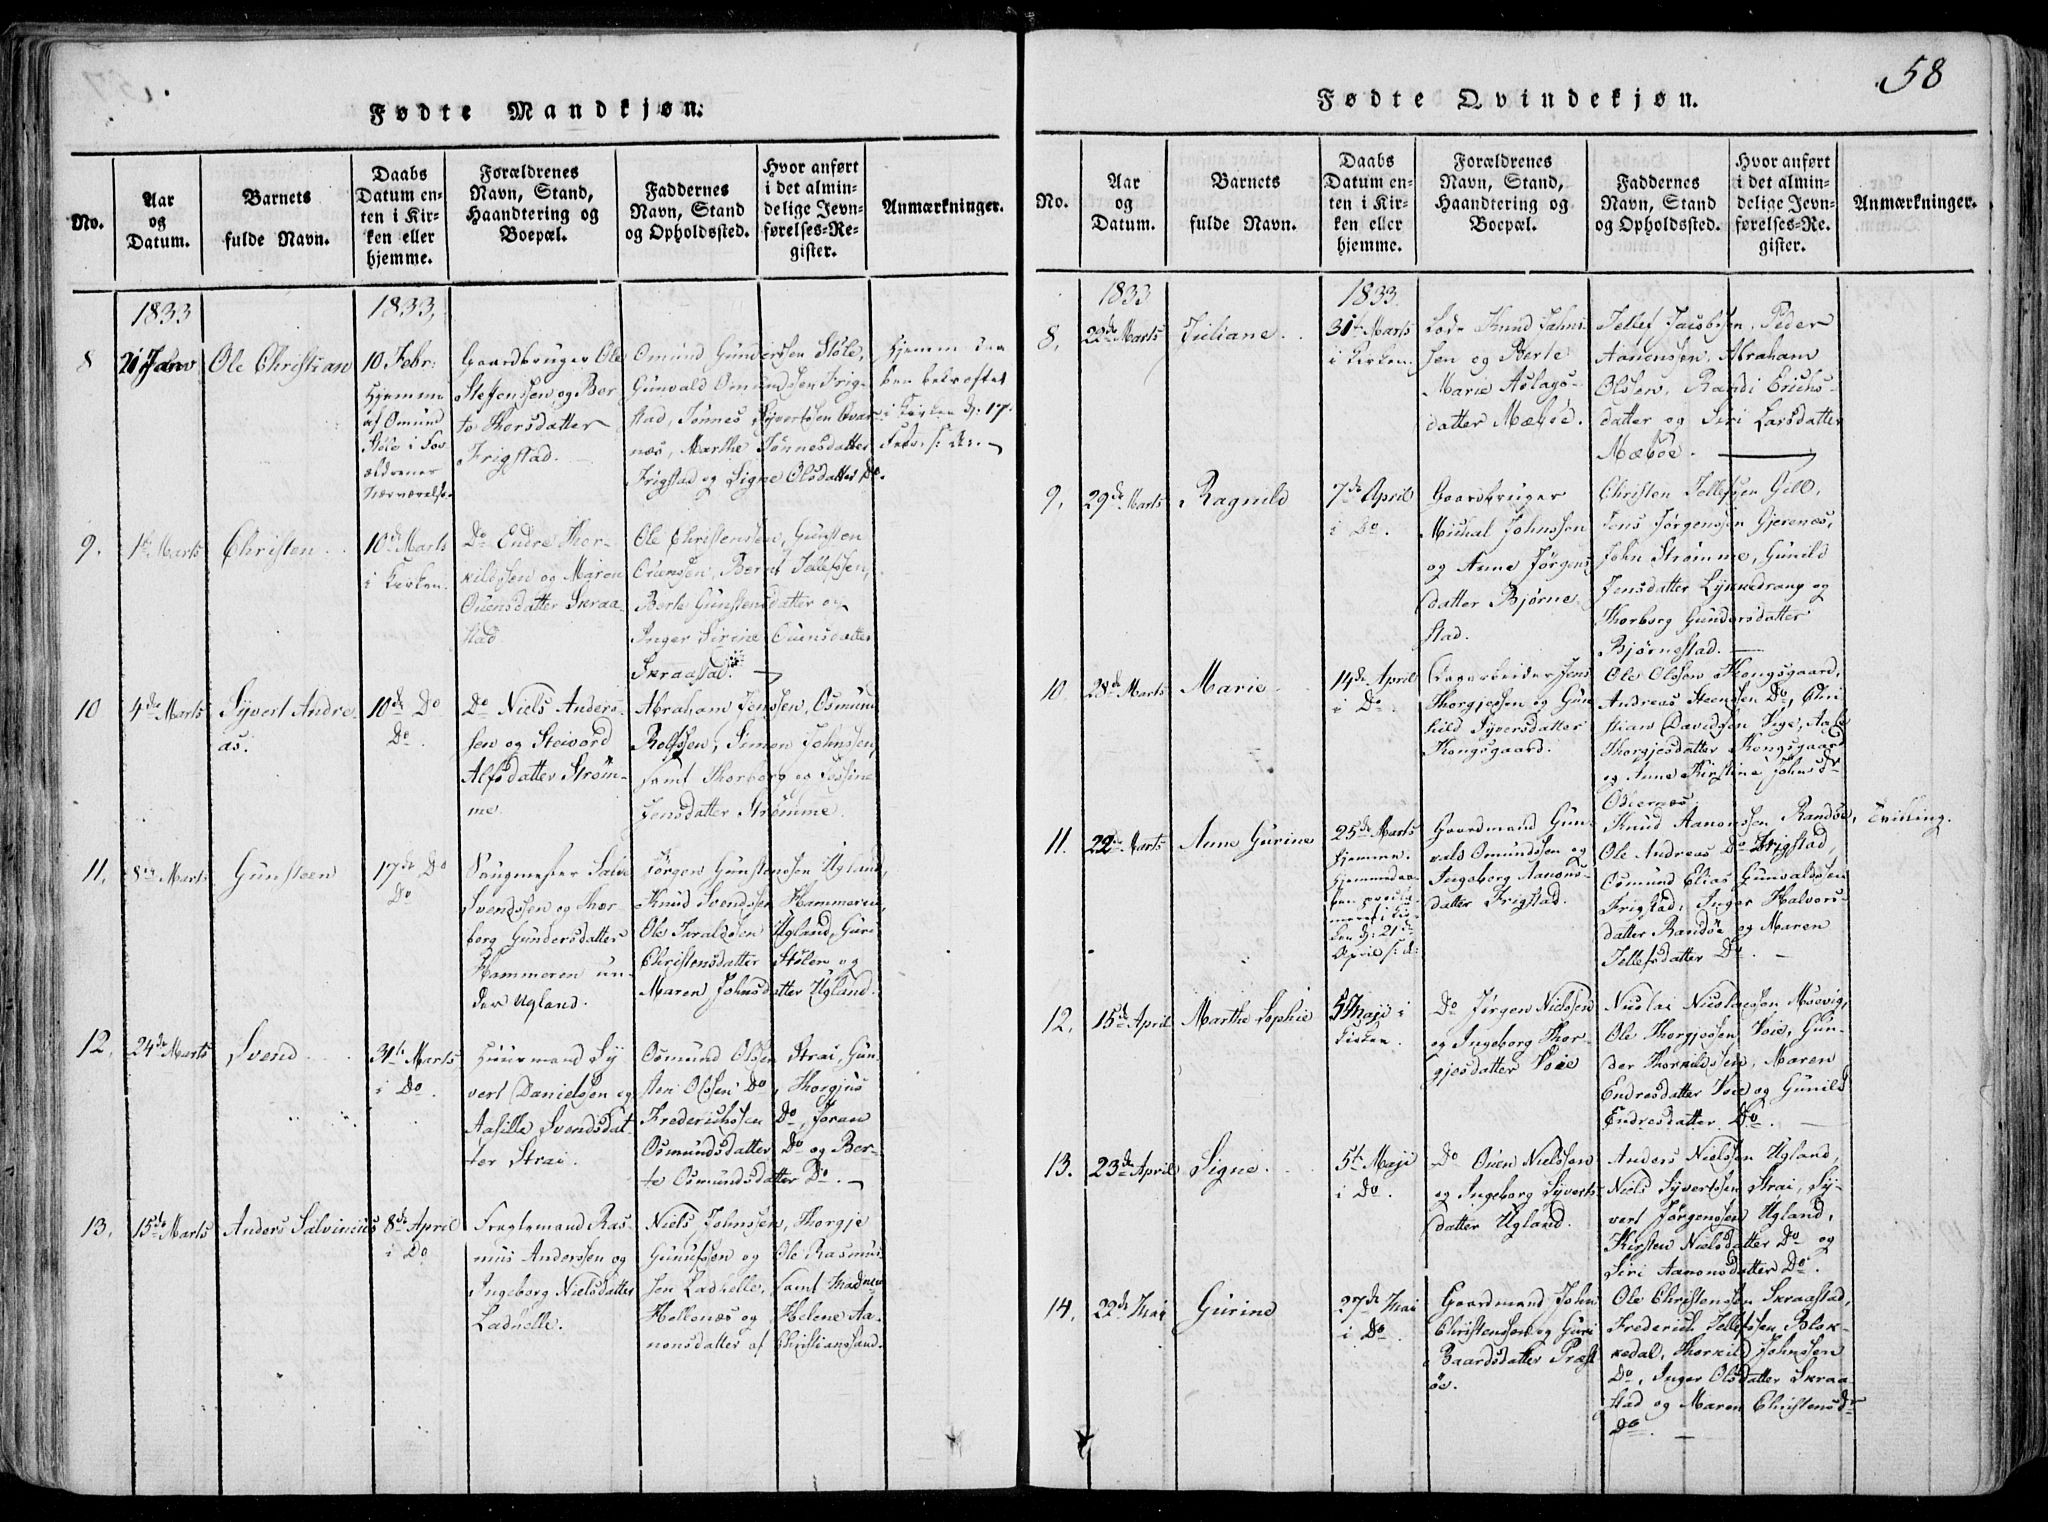 58
Fødte Mandkjøn.
No.
Aar
og
Datum.
Barnets
fulde Navn.
Daabs
Datum en-
ten i Kir-
ken eller
hjemme.
Forældrenes
Navn, Stand,
Haandtering og
Boepæl.
Faddernes
Navn, Stand
og Opholdssted.
Hvor anført
i det almin-
delige Jevn-
førelses-Re-
gister.
Anmærkninger.
1833
1833,
8
21 Janv
Ole Christian
10 Febr:
Hjemme
af Omund
Støle i For
ældrenes
Nærværelse.
Gaardbruger Ole
Stefenssen og Ber-
te Thorsdatter
Frigstad.
Omund Gunderssen Støle,
Gunvald Omundssen Frig-
stad, Tønnes Syvertssen Qvar-
næs, Marthe Tønnesdatter
Frigstad og Signe Olsdatter Do.
Hjemme daa
ben bekræftet
i Kirken d: 17.
Febr. s: d:
9.
1ste Marts
Christen
10de Marts
i Kirken.
Do Endre Thor-
kildssen og Maren
Ouensdatter Skraa-
stad.
Ole Christenssen, Gunsten
Ouensen, Bernt Tellefssen,
Berte Gunstensdatter og
Inger Sirine Ouensdatter
Skraastad.
10
4de Marts
Syvert Andre-
as.
10de Do
Do.
Do Niels Anders-
sen og Steivord
Alfsdatter Strøm-
me.
Abraham Jenssen, Osmund
Rolfssen, Simon Johnssen,
samt Thorborg og Jossine
Jensdatter Strømme.
11.
8de Marts
Gunsteen
17de Do
Do
Saugmester Salve
Svendssen og Thor
borg Gundersdatter
Hammeren un-
der Ugland.
Jørgen Gunstenssen Ugland,
Knud Svendssen Hammeren,
Ole Haraldssen Ugland, Guri
Christensdatter Støler og
Maren Johnsdatter Ugland.
12.
24de Marts
Svend
31te Marts
i Do.
Huusmand Sy
vert Danielssen og
Aasille Svendsdat
ter Strai.
Osmund Olssen Strai, Gun-
sten Olssen Do, Thorgjus
Frederichssen Do, Joran
Osmundsdatter Do og Ber-
te Osmundsdatter Do.
13.
15de Marts
Anders Salvinius
8de April
i Do
Fragtemand Ras-
mus Anderssen og
Ingeborg Nielsdatter
Ladhelle.
Niels Johnssen, Thorgje
Gunufssen og Ole Rasmus
sen Ladhelle, samt Madnem
Hellenæs og Helene Aa-
nonsdatter af Christianssand.
Fødte Qvindekjøn.
No.
Aar
og
Datum.
Barnets
fulde Navn.
Daabs
Datum en-
ten i Kir-
ken eller
hjemme.
Forældrenes
Navn, Stand,
Haandtering og
Boepæl.
Faddernes
Navn, Stand
og Opholdssted.
Hvor anført
i det almin-
delige Jevn-
førelses-Re-
gister.
Anmærkninger.
1833
1833.
8.
22de Marts
Juliane
31te Marts
i Kirken.
Lods Knud Johns-
sen og Berte
Marie Aslags-
datter Mæbøe.
Tellef Jacobssen, Peder
Aanenssen, Abraham
Olssen, Randi Erichs-
datter og Siri Larsdatter
Mæbøe.
9.
29de Marts
Ragnild
7de April
i Do.
Gaardbruger
Michal Johnssen
og Anne Jørgens
datter Bjørne
stad.
Christen Tellefssen Gill,
Jens Jørgenssen Gjerenes,
John Strømme, Gunild
Jensdatter Lykkedrang og
Thorborg Gundersdatter
Bjørnestad.
10.
28de Marts
Marie
14de April
i Do.
Dagarbeider Jens
Thorgjessen og Gun
hild Syversdatter
Kongsgaard.
Ole Olssen Kongsgaard,
Andreas Steenssen Do, Chri
stian Davidssen Vige, Aase
Thorgjesdatter Kongsgaard
og Anne Kirstine Johnsdr
Odernæs.
11.
22de Marts
Anne Gurine
25de Marts
hjemme.
Hjemmedaa-
ben
i Kir
ken d: 21de
April s: d:
Gaardmand Gun
vald Omundssen og
Ingeborg Aanons-
datter Frigstad.
Knud Aanonssen Randøe,
Ole Andreas Do Frigstad,
Osmund Elias Gunvaldssen
Frigstad, Inger Halvors-
datter Randøe og Maren
Tellefsdatter Do.
Tvilling.
12.
15de April
Marthe Sophie
5 Maji i
Kirken.
Do Jørgen Nielssen
og Ingeborg Thor-
gjesdatter Voie
Nicolai Nicolaissen Mosvig,
Ole Thorgjessen Voie, Gun-
der Thorkildssen, Maren
Endresdatter Voie og Gunild
Endresdatter Do.
13.
23de April
Signe
5te Maji
i Do.
Do Ouen Nielssen
og Ingeborg Syverts-
datter Ugland.
Anders Nielssen Ugland,
Niels Syvertssen Strai, Sy-
vert Jørgenssen Ugland,
Kirsten Nielsdatter Do og
Siri Aanonsdatter Do.
14.
22de Mai
Gurine
27de Mai
i Do.
Gaardmand John
Christenssen og Guri
Baardsdatter Præst
øe.
Ole Christenssen Skraastad,
Frederich Tellefssen Blok-
kedal, Thorkild Johnssen
Do, Inger Olsdatter Skraa
stad og Maren Christensdr
Do.